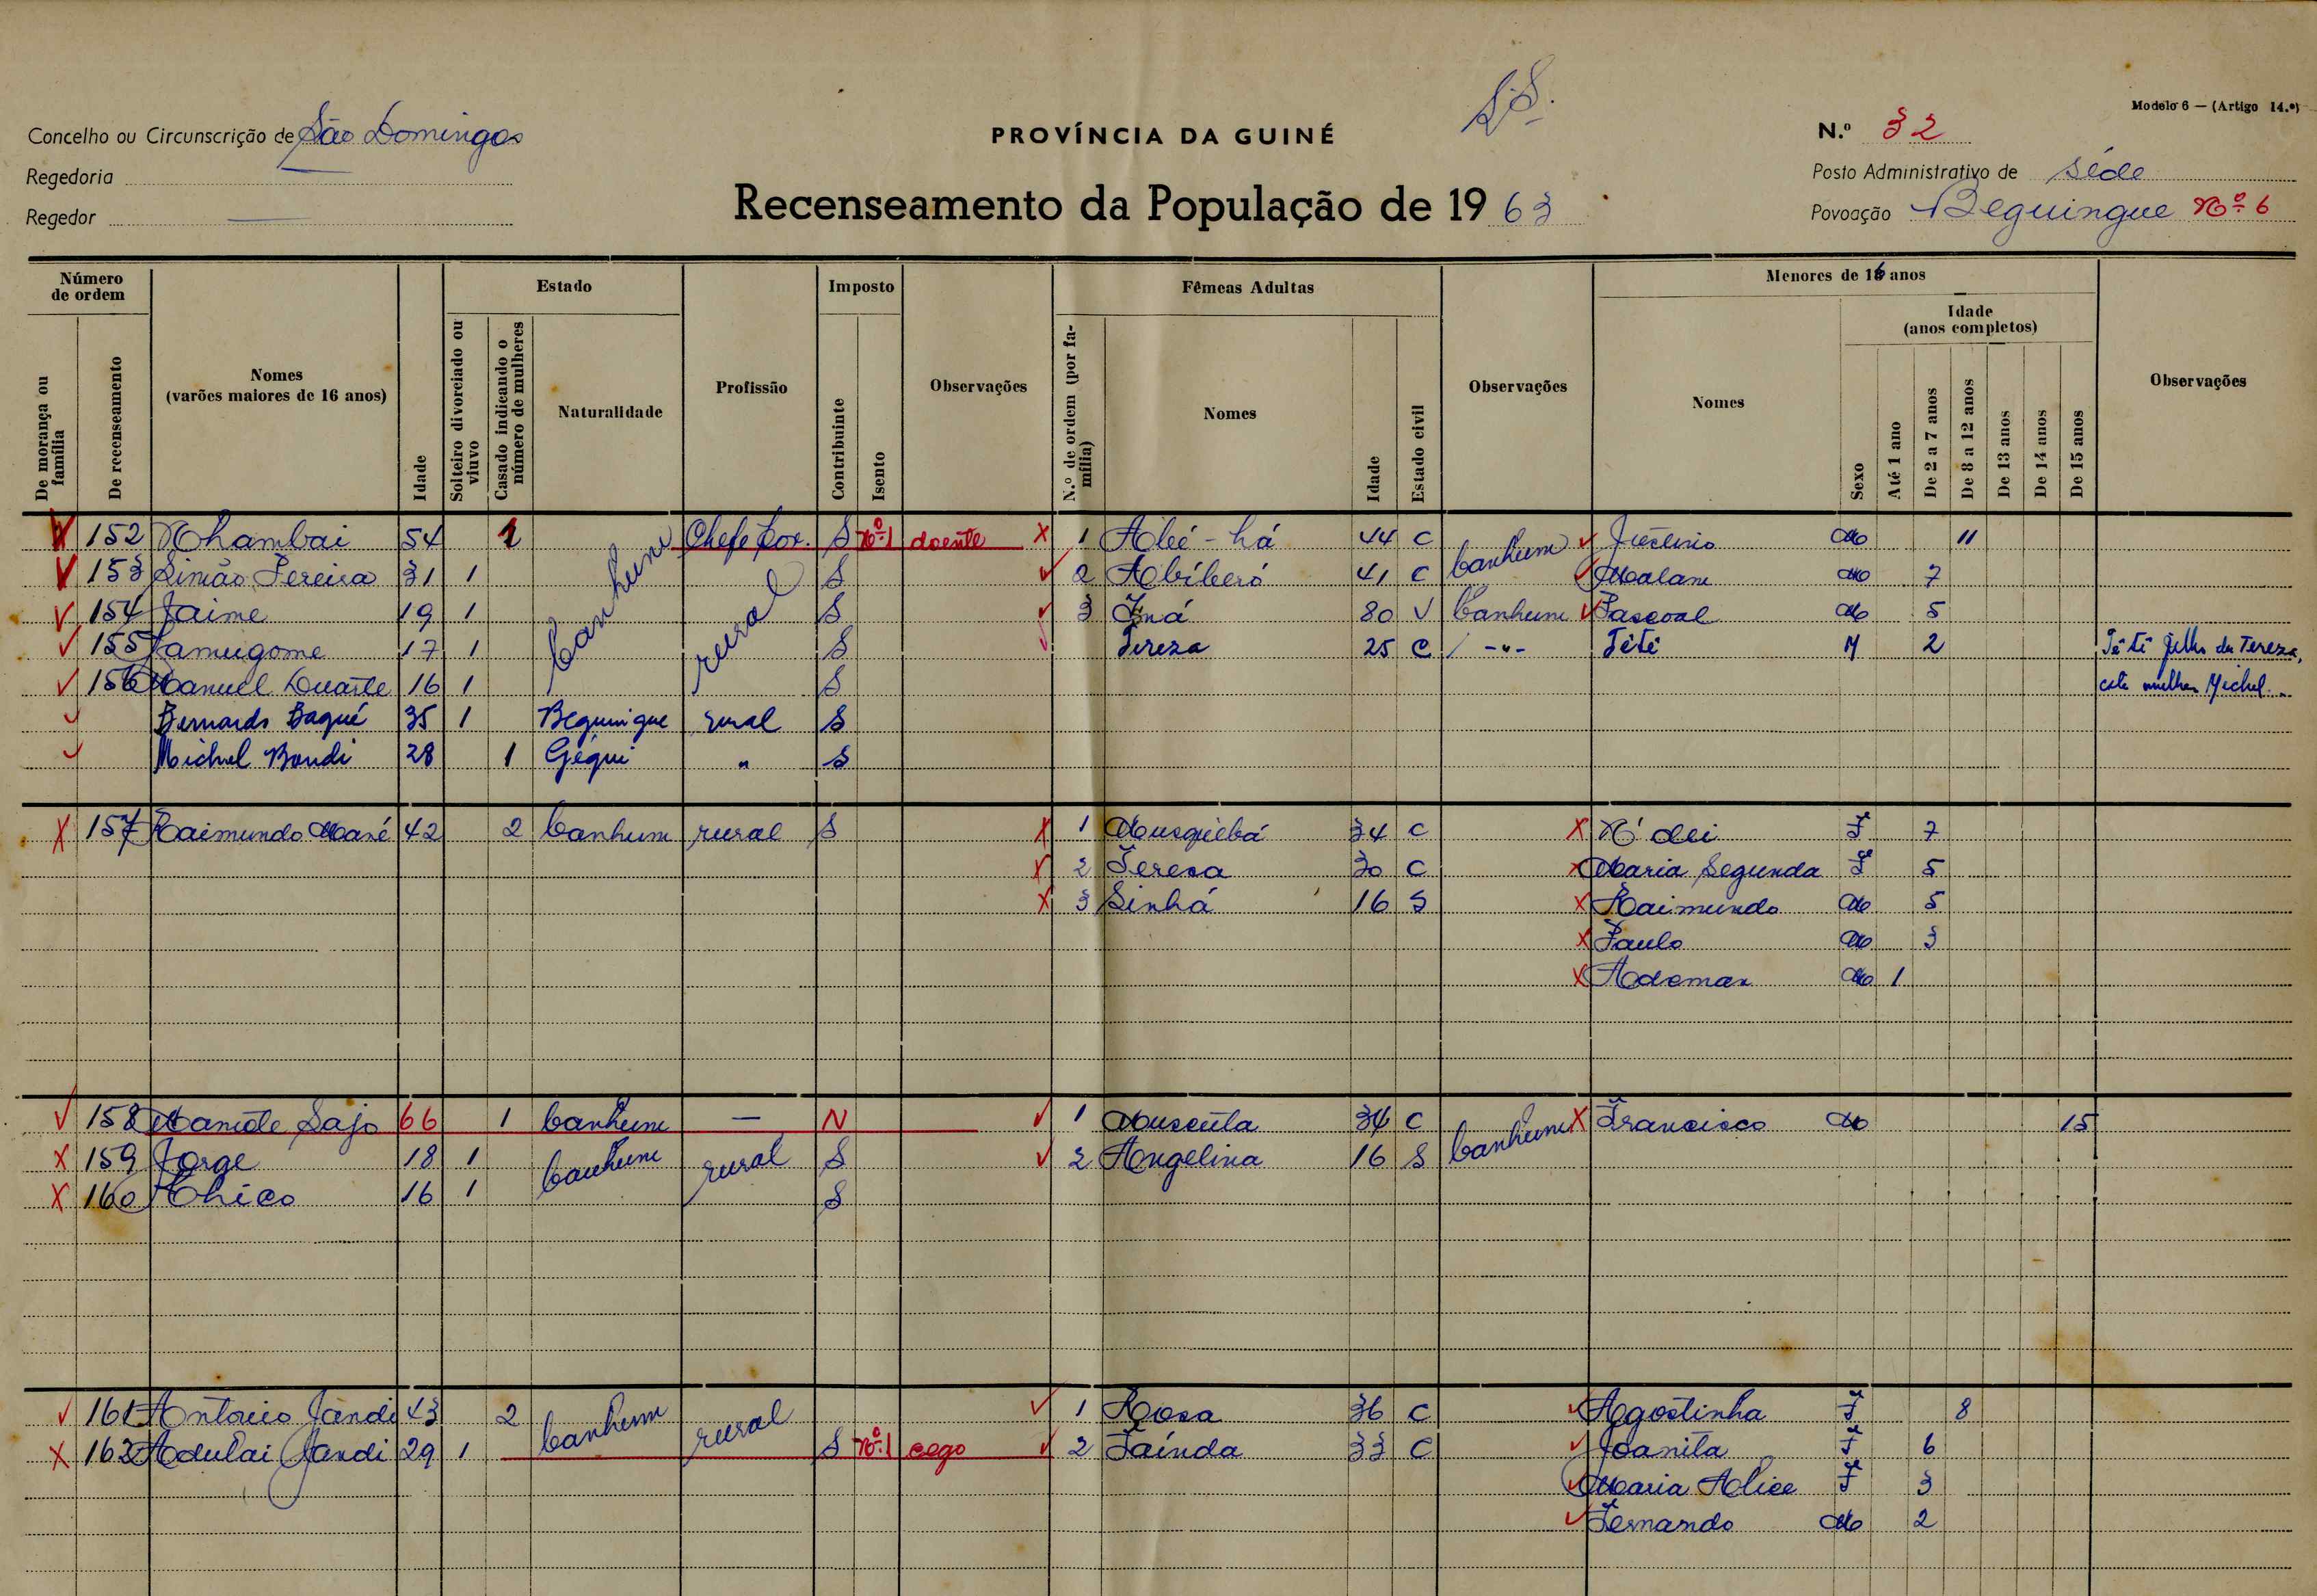 S.S.
Modelo 6 — (Artigo 14.º)
Concelho ou Circunscrição de São Domingos
PROVÍNCIA DA GUINÉ
N.º 32
Regedoria
Posto Administrativo de Séde
Regedor
Recenseamento da População de 1963
Povoação Beguingue Nº 6
Número de ordem
Estado
Imposto
Fêmeas Adultas
Menores de 16 anos
Idade (anos completos)
De morança ou família
De recenseamento
Nomes (varões maiores de 16 anos)
Idade
Solteiro divorciado ou viuvo
Casado indicando o número de mulheres
Naturalidade
Profissão
Contribuinte
Isento
Observações
N.º de ordem (por família)
Nomes
Idade
Estado civil
Observações
Nomes
Sexo
Até 1 ano
De 2 a 7 anos
De 8 a 12 anos
De 13 anos
De 14 anos
De 15 anos
Observações
152 Nhambai 54 1 Banhum Chefe Pov. S Nº 1 doente 1 Abé-há 44 C Banhum Justino M 11
153 Simão Pereira 31 1 rural S 2 Abíberó 41 C Malam M 7
154 Jaime 19 1 S 3 Iná 80 V Banhum Pascoal M 5
155 Jamugome 17 1 S Tereza 25 C -"- Têtê M 2 Têtê filho da Tereza,
156 Manuel Duarte 16 1 S esta mulher Michel
Bernardo Baqué 35 1 Beguingue rural S
Michel Bandi 28 1 Gégui " S
157 Raimundo Mané 42 2 Banhum rural S 1 Musquêbá 34 C N'dei F 7
2 Teresa 30 C Maria Segunda F 5
3 Sinhá 16 S Raimundo M 5
Paulo M 3
Ademar M 1
158 Sajo 66 1 Banhum — N 1 Muscuta 34 C Banhum Francisco M 15
159 Jorge 18 1 Banhum rural S 2 Angelina 16 S
160 Chico 16 1 S
161 António Jandi 43 2 Banhum rural 1 Rosa 36 C Agostinha F 8
162 Adulai Jandi 29 1 S Nº 1 cego 2 Taínda 33 C Joanita F 6
Maria Alice F 3
Fernando M 2